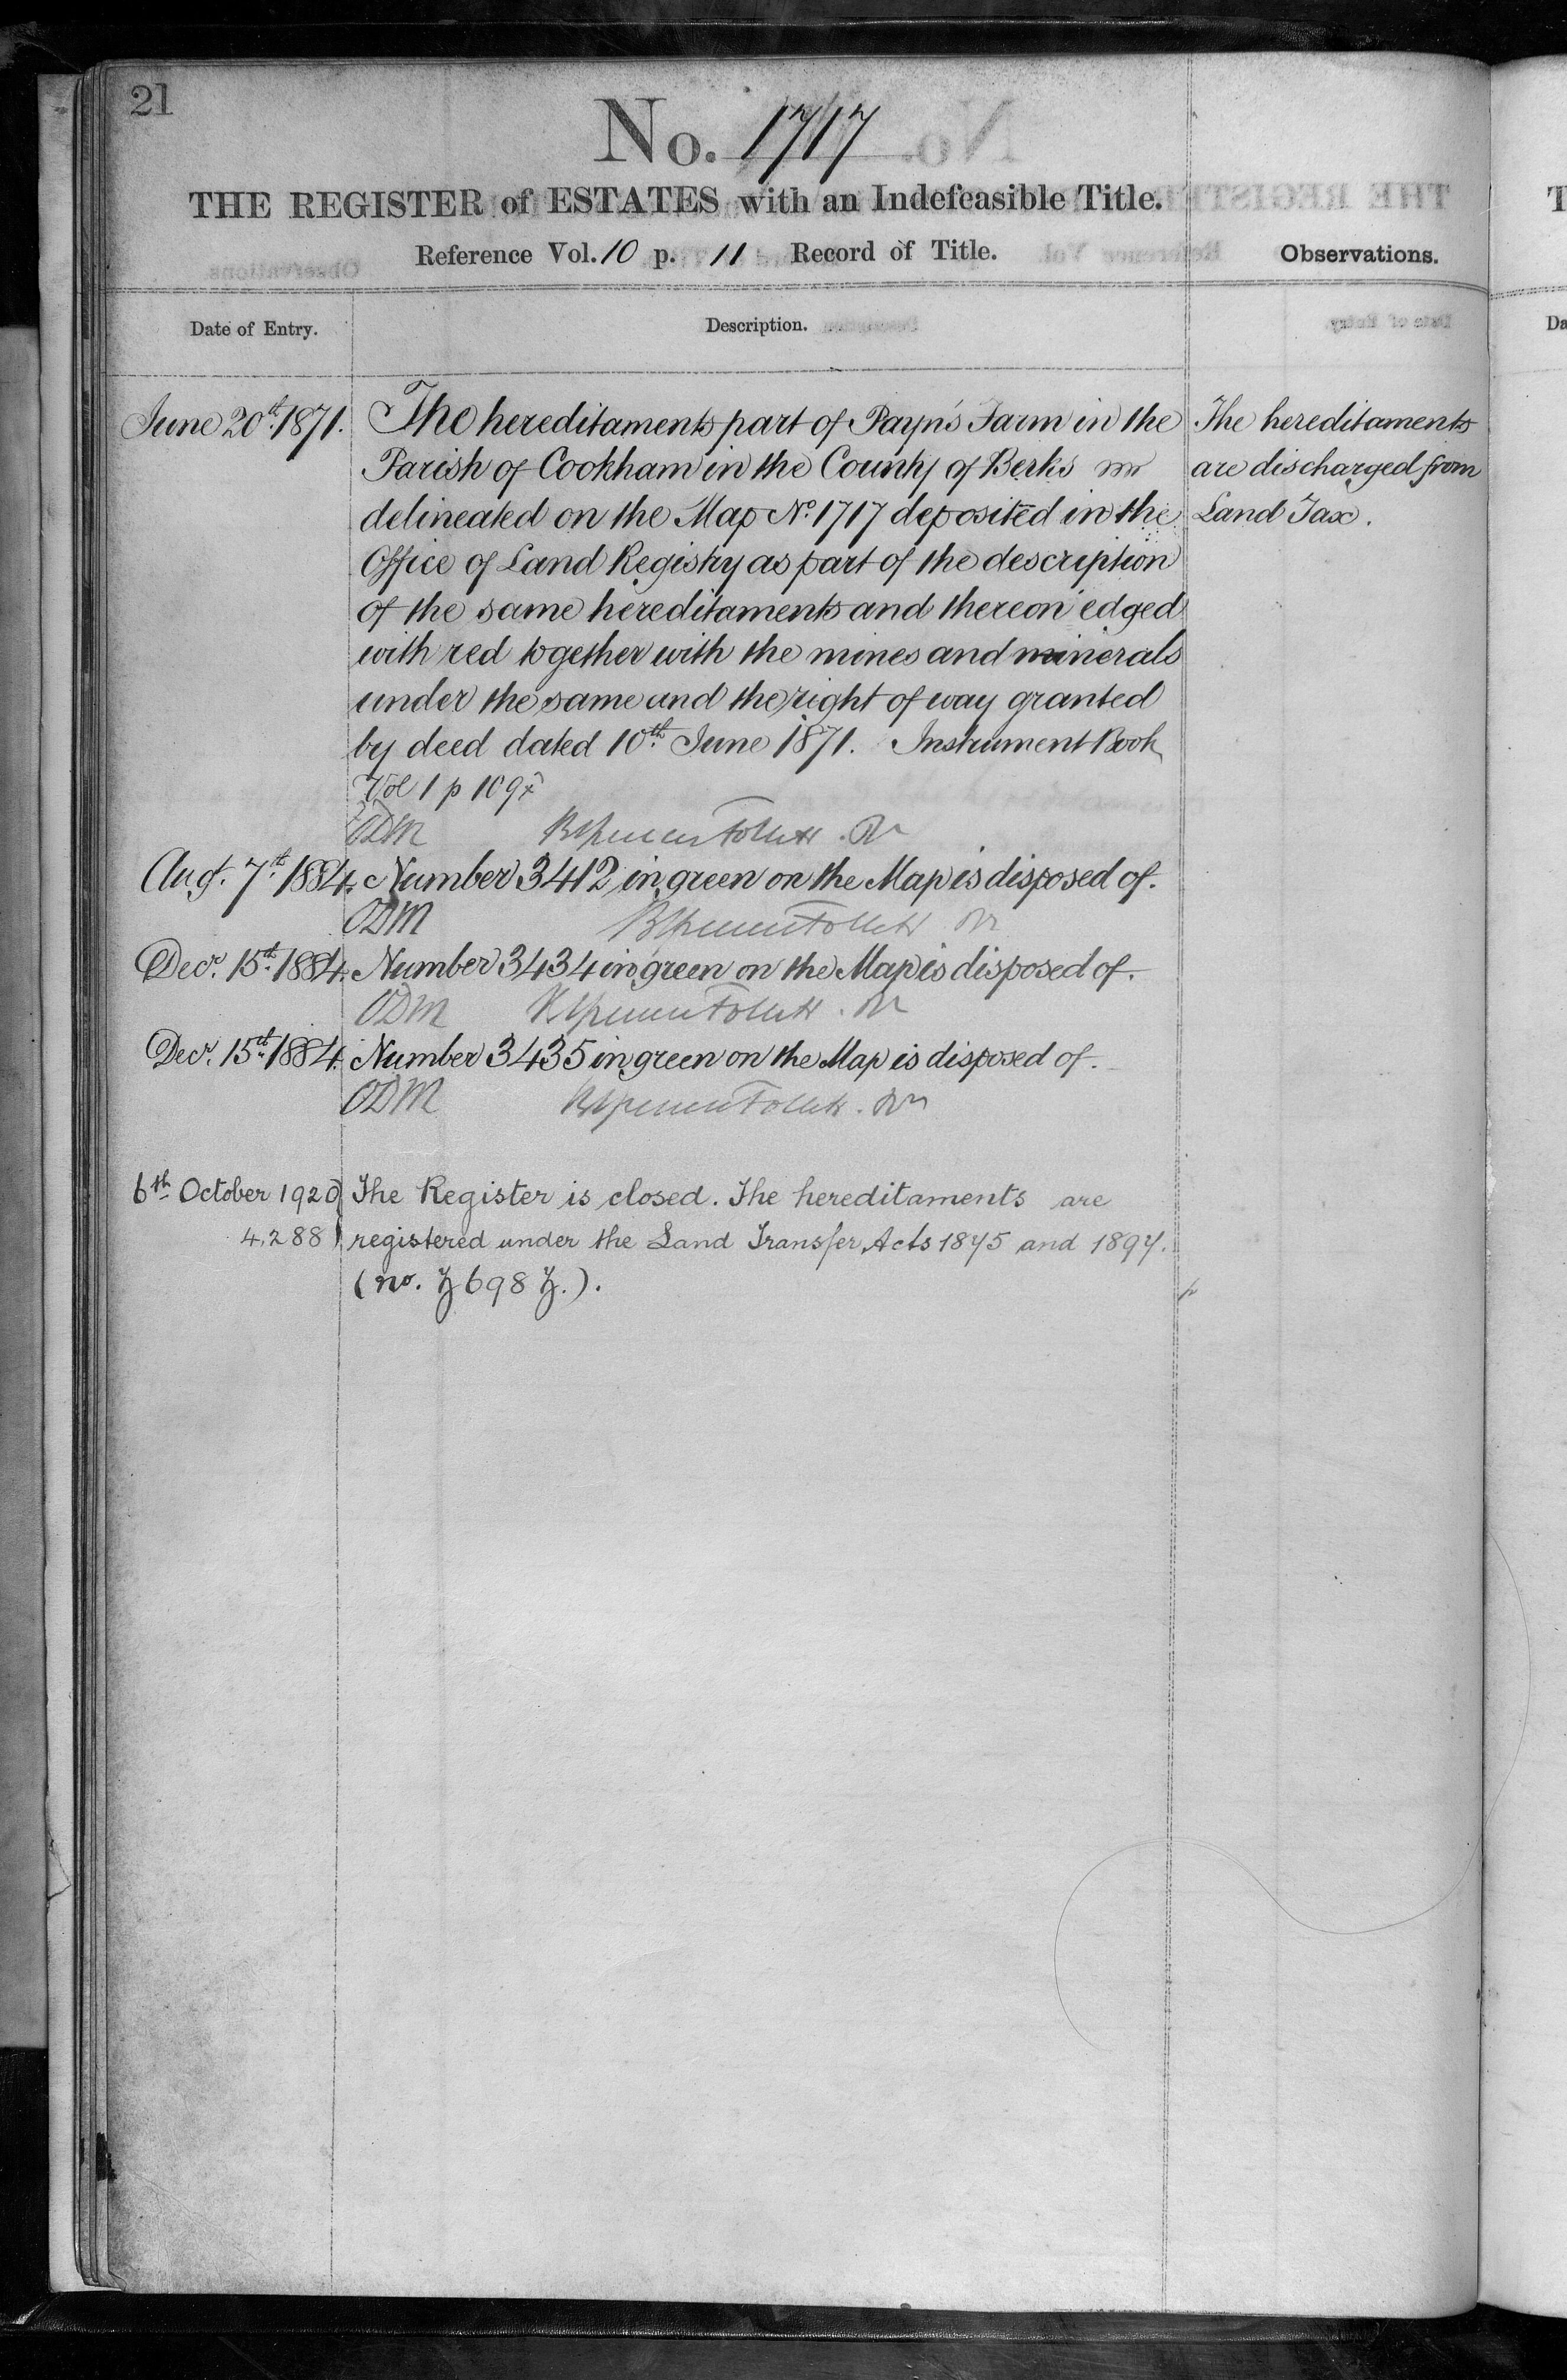 21
No. 1717
THE REGISTER of ESTATES with an Indefeasible Title.
Reference Vol. 10 p. 11 Record of Title.
Observations.
Date of Entry.
Description.
June 20th. 1871.
The hereditaments part of Payn's Farm in the
Parish of Cookham in the County of Berks
delineated on the Map No. 1717 deposited in the
Office of Land Registry as part of the description
of the same hereditaments and thereon edged
with red together with the mines and minerals
under the same and the right of way granted
by deed dated 10th. June 1871. Instrument Book
Vol 1 p 109
ODM
The hereditaments
are discharged from
Land Tax.
Augt. 7th. 1884. Number 3412 in green on the Map is disposed of.
ODM
Decr. 15th. 1884. Number 3434 in green on the Map is disposed of.
ODM
Decr. 15th. 1884. Number 3435 in green on the Map is disposed of.
ODM
6th October 1920 The Register is closed. The hereditaments are
4,288 registered under the Land Transfer Acts 1875 and 1897.
(no. 698
T
Da